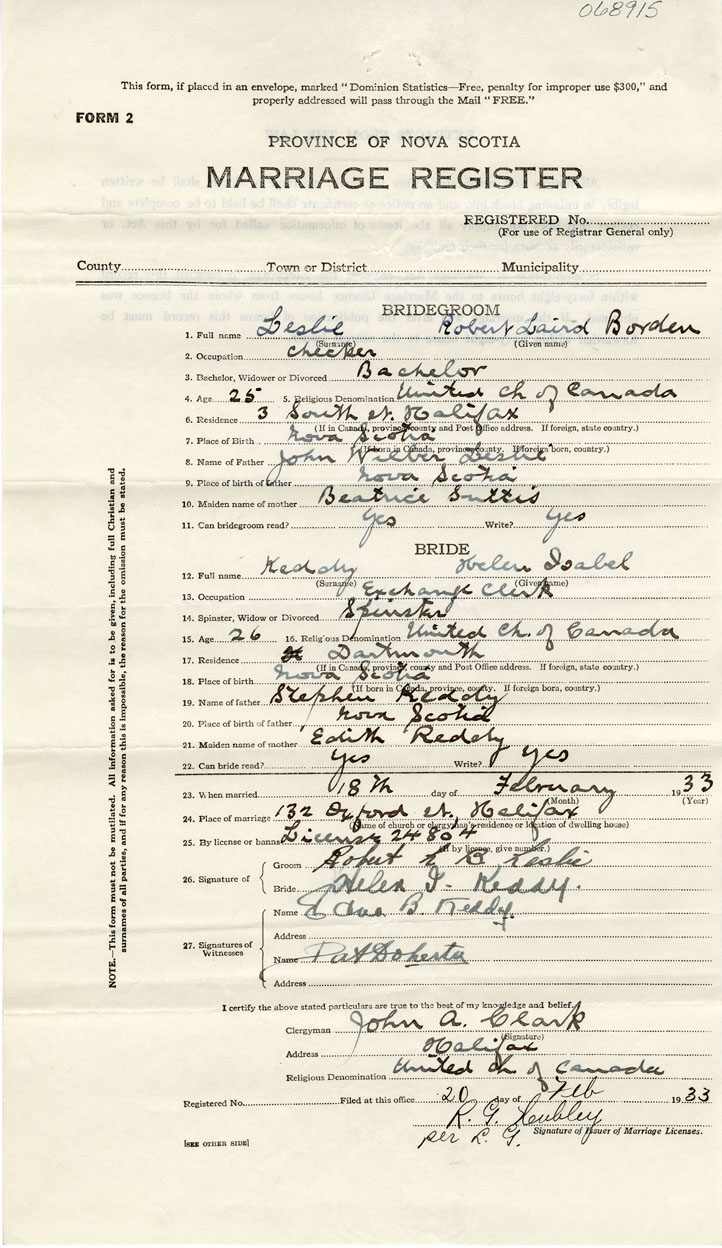 068915
This form, if placed in an envelope, marked "Dominion Statistics—Free, penalty for improper use $300," and
properly addressed will pass through the Mail "FREE."
FORM 2
PROVINCE OF NOVA SCOTIA
MARRIAGE REGISTER
REGISTERED No.
(For use of Registrar General only)
County Town or District Municipality
BRIDEGROOM
1. Full name Leslie Robert Laird Borden
(Surname) (Given name)
2. Occupation checker
3. Bachelor, Widower or Divorced Bachelor
4. Age 25 5. Religious Denomination United Ch of Canada
6. Residence 3 South st. Halifax
(If in Canada, province, county and Post Office address. If foreign, state country.)
7. Place of Birth Nova Scotia
(If born in Canada, province, county. If foreign born, country.)
8. Name of Father John Wilber Leslie
9. Place of birth of father Nova Scotia
10. Maiden name of mother Beatrice Suttis
11. Can bridegroom read? Yes Write? Yes
BRIDE
12. Full name Keddy Helen Isabel
(Surname) (Given name)
13. Occupation Exchange Clerk
14. Spinster, Widow or Divorced Spinster
15. Age 26 16. Religious Denomination United Ch. of Canada
17. Residence Dartmouth
(If in Canada, province, county and Post Office address. If foreign, state country.)
18. Place of birth Nova Scotia
(If born in Canada, province, county. If foreign born, country.)
19. Name of father Stephen Keddy
20. Place of birth of father Nova Scotia
21. Maiden name of mother Edith Keddy
22. Can bride read? Yes Write? Yes
23. When married 18th day of February 1933
(Month) (Year)
24. Place of marriage 132 Oxford st, Halifax
(Name of church or clergyman's residence or location of dwelling house)
25. By license or banns License 24804
(If by license, give number.)
26. Signature of
Groom Robert L B Leslie
Bride Helen I. Keddy.
27. Signatures of Witnesses
Name B. Keddy.
Address
Name Pat Doherty
Address
I certify the above stated particulars are true to the best of my knowledge and belief.
Clergyman John A. Clark
(Signature)
Address Halifax
Religious Denomination United Ch of Canada
Registered No. Filed at this office 20 day of Feb 1933
R. G.
per L. G. Signature of Issuer of Marriage Licenses.
[SEE OTHER SIDE]
NOTE.—This form must not be mutilated. All information asked for is to be given, including full Christian and
surnames of all parties, and if for any reason this is impossible, the reason for the omission must be stated.